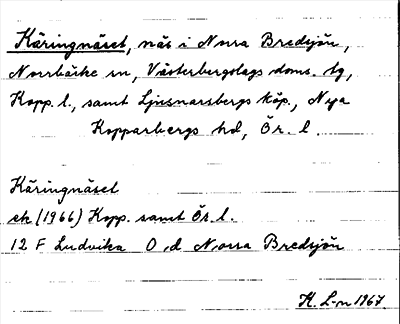 Käringnäset, näs i Norra Bredsjön,
Norrbärke sn, Västerbergslags doms. tg,
Kopp. l., samt Ljusnarsbergs köp., Nya
Kopparbergs hd, Ör. l.
Käringnäset
ek (1966) Kopp. samt Ör. l.
12 F Ludvika 0 d Norra Bredsjön
K. L-n 1967.